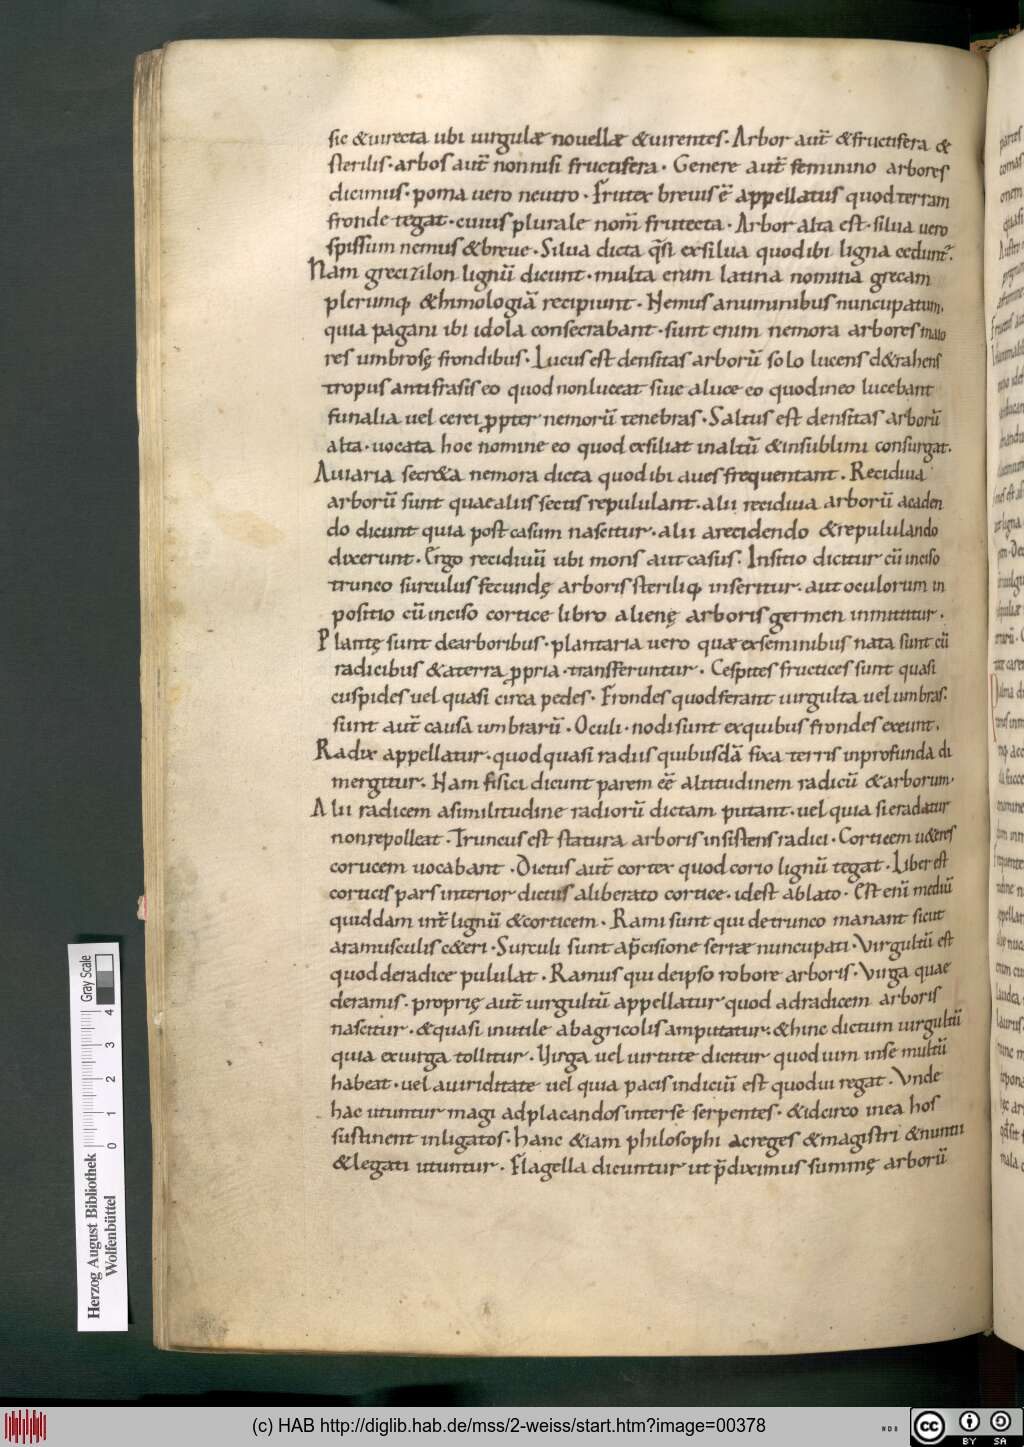 sic &uirecta ubi uirgulæ nouellæ &uirentes. Arbor aut̄ &fructifera &
sterilis. arbos aut̄ non nisi fructifera. Genere aut̄ feminino arbores
dicimus. poma uero neutro. Frutex breuis ē appellatus quod terram
fronde tegat. cuius plurale nom̄ frutecta. Arbor alta est. silua uero
spissum nemus &breue. Silua dicta q̄si exsilua quod ibi ligna cedunt᷑.
Nam greci zilon lignū dicunt. multa enim latina nomina grecam
plerumq; &himologiā recipiunt. Nemus anuminibus nuncupatum.
quia pagani ibi idola consecrabant. sunt enim nemora arbores maio
res umbrosę frondibus. Lucus est densitas arborū solo lucens d&rahens
tropus antifrasis eo quod non luceat siue aluce eo quod ineo lucebant
funalia uel cerei ꝓpter nemorū tenebras. Saltus est densitas arborū
alta. uocata hoc nomine eo quod exsiliat inaltū &insublimi consurgat.
Auiaria secr&a nemora dicta quod ibi aues frequentant. Recidiua
arborū sunt quae aliis sectis repululant. alii recidiua arborū acaden
do dicunt quia post casum nascitur. alii arecidendo &repululando
dixerunt. Ergo recidiuū ubi mons aut casus. Insitio dicitur cū inciso
trunco surculus fecundę arboris steriliq; inseritur. aut oculorum in
positio cū inciso cortice libro alienę arboris germen inmittitur.
Plantę sunt dearboribus. plantaria uero quæ exseminibus nata sunt cū
radicibus &aterra ꝓpria transferuntur. Cespites fructices sunt quasi
cuspides uel quasi circa pedes. Frondes quod ferant uirgulta uel umbras.
sunt aut̄ causa umbrarū. Oculi. nodi sunt exquibus frondes exeunt.
Radix appellatur. quod quasi radiis quibusdā fixa terris inprofunda di
mergitur. Nam fisici dicunt parem eē altitudinem radicū &arborum.
Alii radicem asimilitudine radiorū dictam putant. uel quia si eradatur
non repolleat. Truncus est statura arboris insistens radici. Corticem u&eres
corucem uocabant. Dictus aut̄ cortex quod corio lignū tegat. Liber est
corticis pars interior dictus aliberato cortice. idest ablato. Est enī mediū
quiddam int̄ lignū &corticem. Rami sunt qui de trunco manant sicut
aramusculis c&eri. Surculi sunt ap̄cisione serræ nuncupati. Virgultū est
quod deradice pululat. Ramus qui deipso robore arboris. Virga quae
deramis. proprię aut̄ uirgultū appellatur quod adradicem arboris
nascitur. &quasi inutile abagricolis amputatur. &hinc dictum uirgultū
quia exuirga tollitur. Virga uel uirtute dicitur quod uim inse multū
habeat. uel auiriditate uel quia pacis indiciū est quod ui regat. Vnde
hac utuntur magi adplacandos interse serpentes. &idcirco inea hos
sustinent inligatos. hanc &iam philosophi ac reges &magistri &nuntii
&legati utuntur. Flagella dicuntur ut p̄diximus summę arborū
Gray Scale
0 1 2 3 4
Herzog August Bibliothek
Wolfenbüttel
(c) HAB http://diglib.hab.de/mss/2-weiss/start.htm?image=00378
cc BY SA